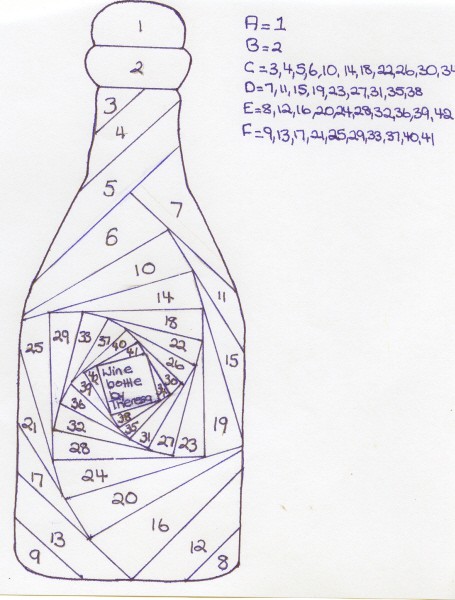 A=1
B=2
C=3,4,5,6,10,14,18,22,26,30,34
D=7,11,15,19,23,27,31,35,38
E=8,12,16,20,24,28,32,36,39,42
F=9,13,17,21,25,29,33,37,40,41
1
2
3
4
5
7
6
10
11
14
18
25 29 33 37 40 22
41
26
15
Wine
bottle
by
Theresa
42
39
30
36
38
35
21 32 31 27 23 19
28
17 24
20
16
13 12
9 8